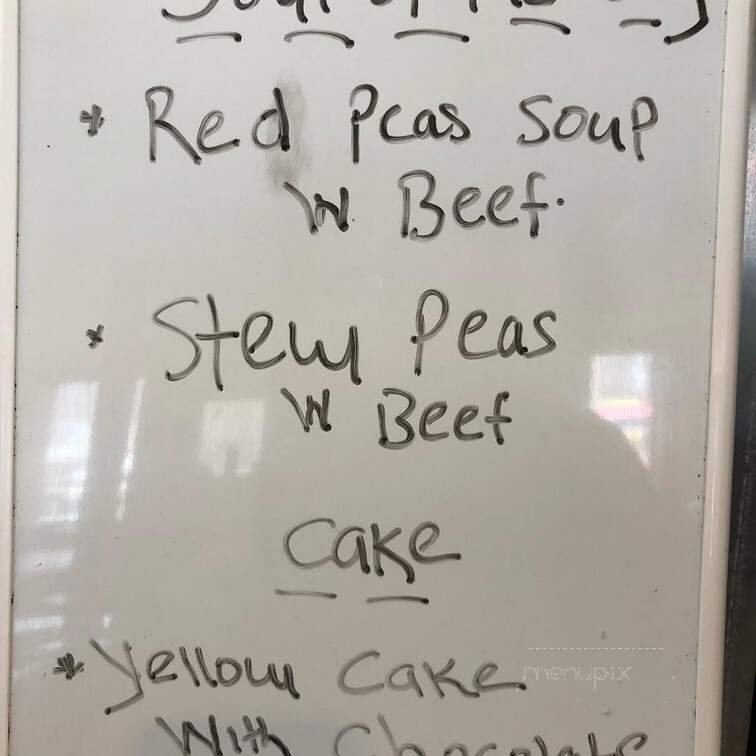 * Red Peas Soup
W. Beef.
* Stew Peas
W Beef
Cake
* Yellow Cake
menupix
With Chocolate